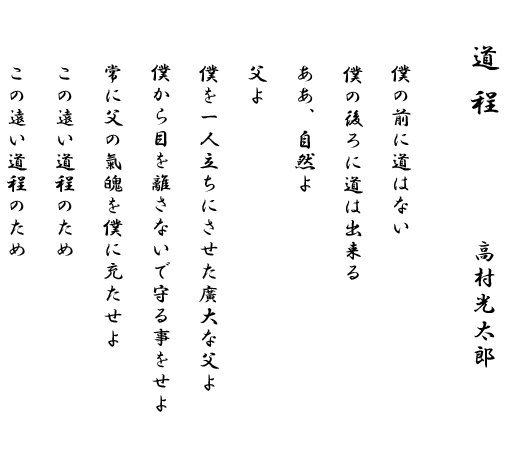 道程
高村光太郎
僕の前に道はない
僕の後ろに道は出来る
ああ、自然よ
父よ
僕を一人立ちにさせた廣大な父よ
僕から目を離さないで守る事をせよ
常に父の氣魄を僕に充たせよ
この遠い道程のため
この遠い道程のため